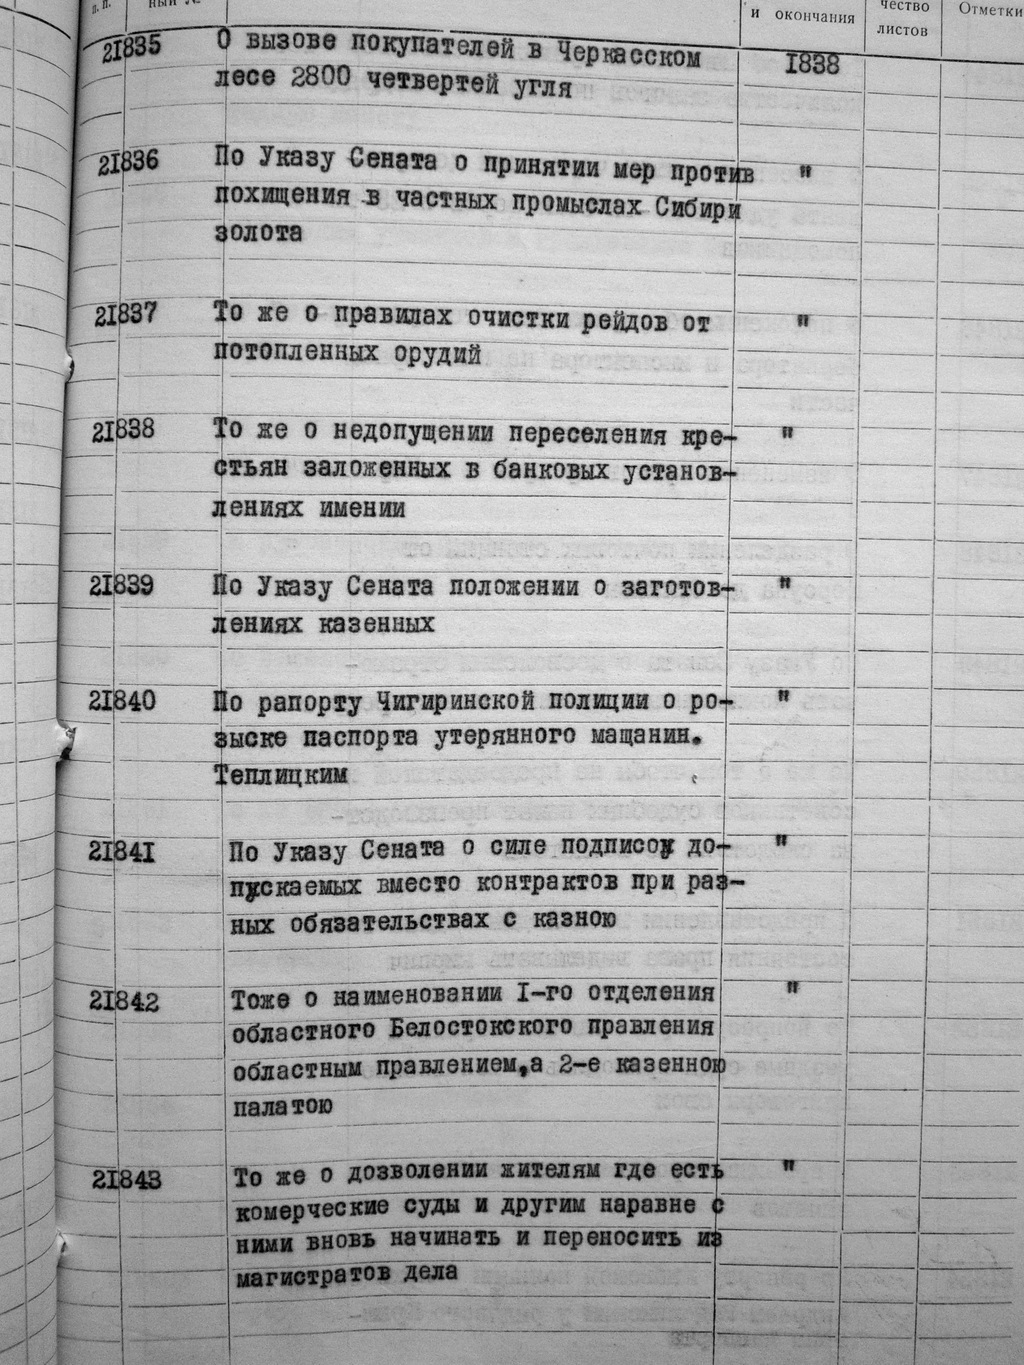 п. п.
ный №
и окончания
чество
листов
Отметки
21835 О вызове покупателей в Черкасском 1838
лесе 2800 четвертей угля
21836 По Указу Сената о принятии мер против "
похищения в частных промыслах Сибири
золота
21837 То же о правилах очистки рейдов от "
потопленных орудий
21838 То же о недопущении переселения кре- "
стьян заложенных в банковых установ-
лениях имении
21839 По Указу Сената положении о заготов- "
лениях казенных
21840 По рапорту Чигиринской полиции о ро- "
зыске паспорта утерянного мащанин.
Теплицким
21841 По Указу Сената о силе подписоу до- "
пускаемых вместо контрактов при раз-
ных обязательствах с казною
21842 Тоже о наименовании I-го отделения "
областного Белостокского правления
областным правлением,а 2-е казенною
палатою
21843 То же о дозволении жителям где есть "
комерческие суды и другим наравне с
ними вновь начинать и переносить из
магистратов дела